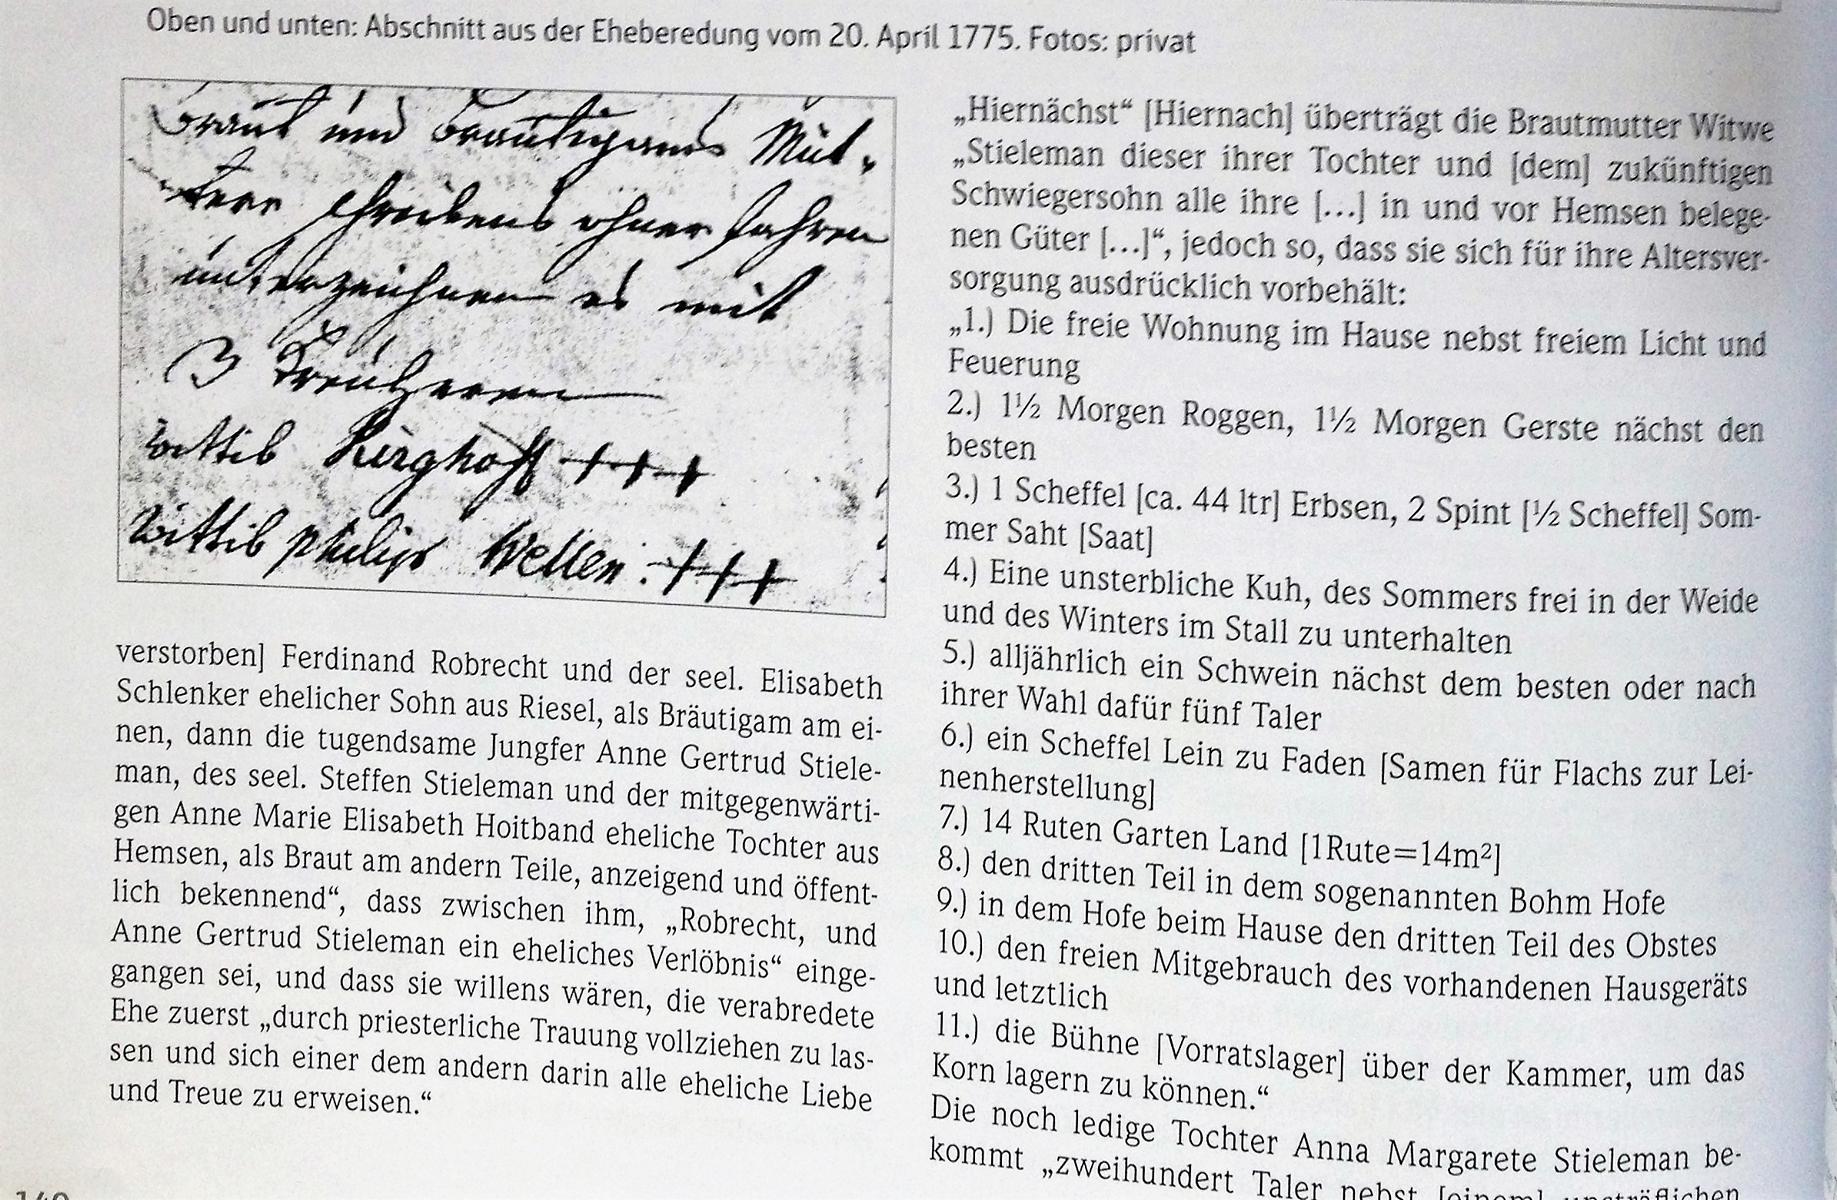 Oben und unten: Abschnitt aus der Eheberedung vom 20. April 1775. Fotos: privat
Braut und Bräutigams Müt,
tere schreibens ohner fahren
unterzeichnen es mit
3 Kreützeren
Wittib Kirghoff +++
Wittib philips Wellen :+++
verstorben] Ferdinand Robrecht und der seel. Elisabeth
Schlenker ehelicher Sohn aus Riesel, als Bräutigam am ei-
nen, dann die tugendsame Jungfer Anne Gertrud Stiele-
man, des seel. Steffen Stieleman und der mitgegenwärti-
gen Anne Marie Elisabeth Hoitband eheliche Tochter aus
Hemsen, als Braut am andern Teile, anzeigend und öffent-
lich bekennend“, dass zwischen ihm, „Robrecht, und
Anne Gertrud Stieleman ein eheliches Verlöbnis“ einge-
gangen sei, und dass sie willens wären, die verabredete
Ehe zuerst „durch priesterliche Trauung vollziehen zu las-
sen und sich einer dem andern darin alle eheliche Liebe
und Treue zu erweisen.“
„Hiernächst“ [Hiernach] überträgt die Brautmutter Witwe
„Stieleman dieser ihrer Tochter und [dem] zukünftigen
Schwiegersohn alle ihre [...] in und vor Hemsen belege-
nen Güter [...]“, jedoch so, dass sie sich für ihre Altersver-
sorgung ausdrücklich vorbehält:
„1.) Die freie Wohnung im Hause nebst freiem Licht und
Feuerung
2.) 1½ Morgen Roggen, 1½ Morgen Gerste nächst den
besten
3.) 1 Scheffel [ca. 44 ltr] Erbsen, 2 Spint [½ Scheffel] Som-
mer Saht [Saat]
4.) Eine unsterbliche Kuh, des Sommers frei in der Weide
und des Winters im Stall zu unterhalten
5.) alljährlich ein Schwein nächst dem besten oder nach
ihrer Wahl dafür fünf Taler
6.) ein Scheffel Lein zu Faden [Samen für Flachs zur Lei-
nenherstellung]
7.) 14 Ruten Garten Land [1Rute=14m²]
8.) den dritten Teil in dem sogenannten Bohm Hofe
9.) in dem Hofe beim Hause den dritten Teil des Obstes
10.) den freien Mitgebrauch des vorhandenen Hausgeräts
und letztlich
11.) die Bühne [Vorratslager] über der Kammer, um das
Korn lagern zu können.“
Die noch ledige Tochter Anna Margarete Stieleman be-
kommt „zweihundert Taler nebst [einem] unsträflichen